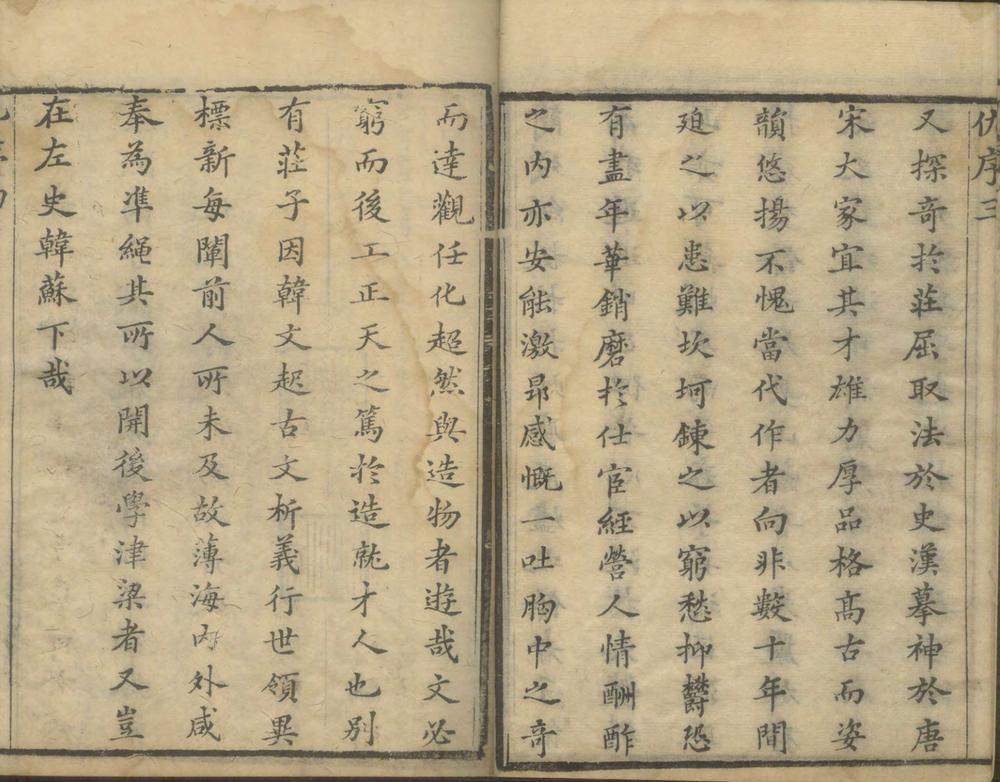 序三
又探奇於莊屈取法於史漢摹神於唐
宋大家宜其才雄力厚品格髙古而姿
韻悠揚不愧當代作者向非數十年間
廹之以患難坎坷鍊之以窮愁抑鬱恐
有盡年華銷磨於仕宦經營人情酬酢
之内亦安能激昂感慨一吐胸中之奇
而達觀任化超然與造物者遊哉文必
窮而後工正天之篤於造就才人也别
有莊子因韓文起古文析義行世領異
標新每闡前人所未及故薄海内外咸
奉為凖繩其所以開後學津梁者又豈
在左史韓蘇下哉